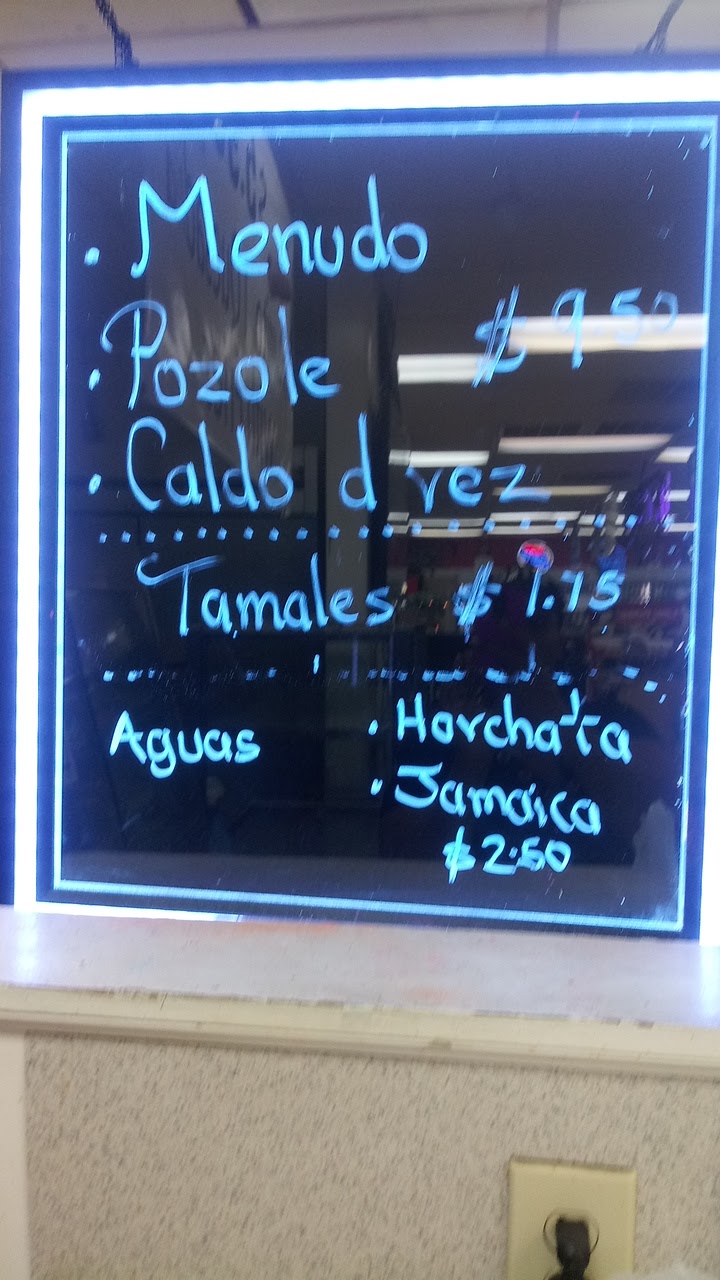 • Menudo
• Pozole $ 9.50
• Caldo d rez
Tamales $ 1.75
Aguas • Horchata
• Jamaica
$ 2.50